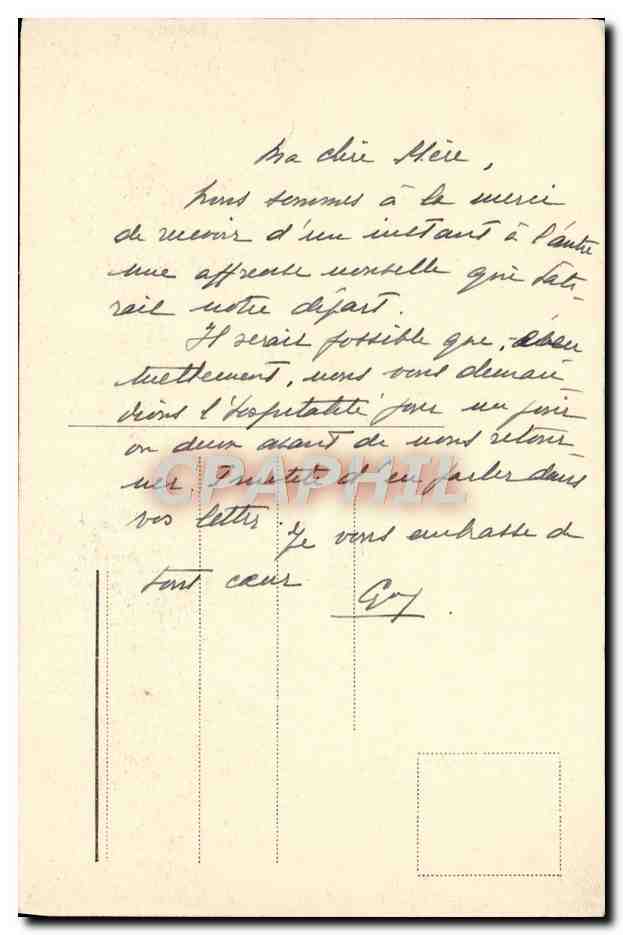 Ma chère Mère,
Nous sommes à la merci
de recevoir d'un instant à l'autre
une affreuse nouvelle qui hâte-
rait notre départ.
Il serait possible que, éven
tuellement, nous vous deman
dions l'hospitalité pour un jour
ou deux avant de nous retour
ner. Inutile d'en parler dans
vos lettres. Je vous embrasse de
tout cœur
Guy
CPAPHIL